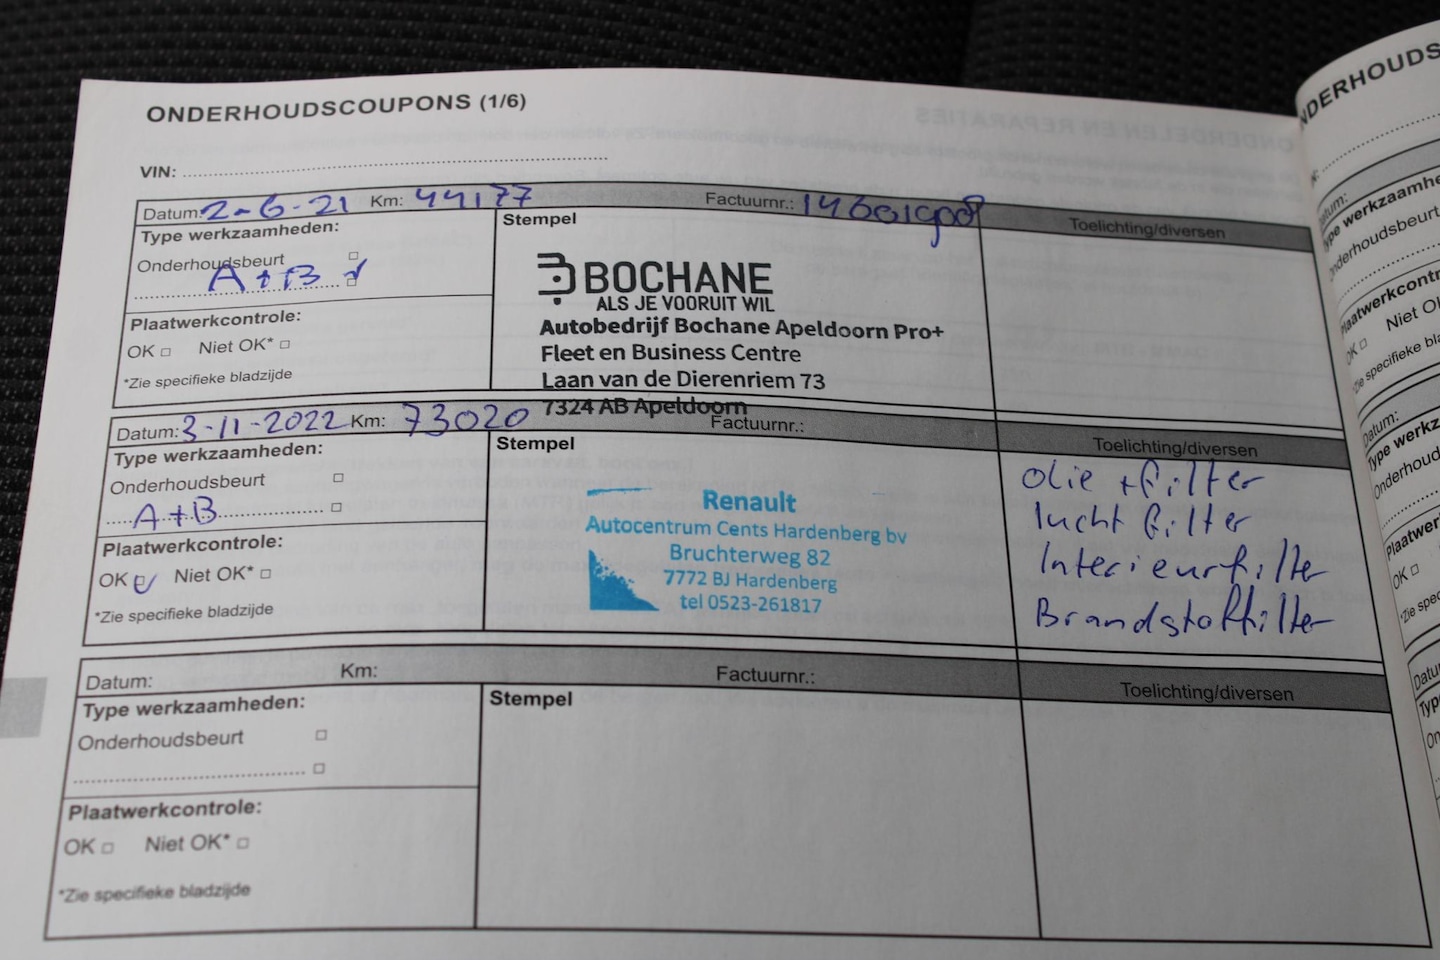 ONDERHOUDSCOUPONS (1/6)
VIN:
Datum: 2-6-21 Km: 44177 Factuurnr.: Toelichting/diversen
Type werkzaamheden:
Onderhoudsbeurt
A+B
Plaatwerkcontrole:
OK Niet OK*
*Zie specifieke bladzijde
Stempel
BOCHANE
ALS JE VOORUIT WIL
Autobedrijf Bochane Apeldoorn Pro+
Fleet en Business Centre
Laan van de Dierenriem 73
7324 AB Apeldoorn
Datum: 3-11-2022 Km: 73020 Factuurnr.: Toelichting/diversen
Type werkzaamheden:
Onderhoudsbeurt
A+B
Plaatwerkcontrole:
OK Niet OK*
*Zie specifieke bladzijde
Stempel
Renault
Autocentrum Cents Hardenberg bv
Bruchterweg 82
7772 BJ Hardenberg
tel 0523-261817
Olie + filter
lucht filter
Interieurfilter
Brandstoffilter
Datum: Km: Factuurnr.: Toelichting/diversen
Type werkzaamheden:
Onderhoudsbeurt
Plaatwerkcontrole:
OK Niet OK*
*Zie specifieke bladzijde
Stempel